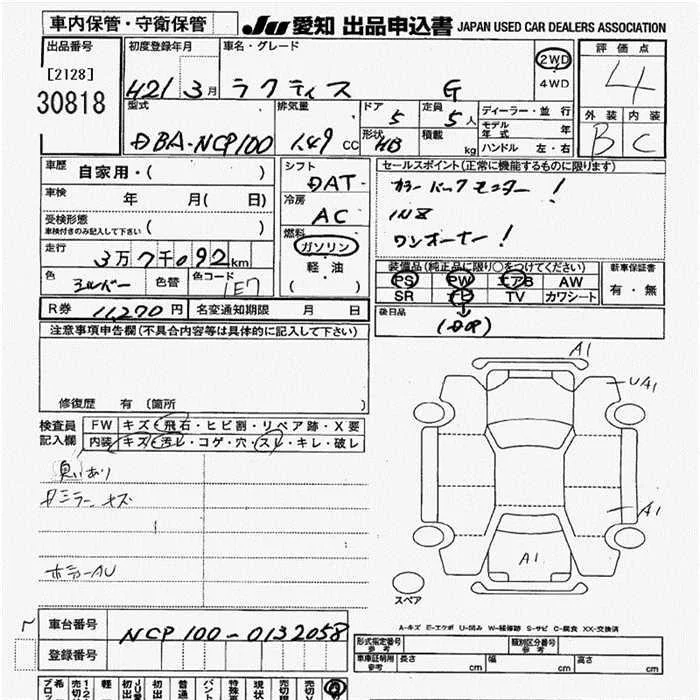 車内保管・守衛保管
JU 愛知 出品申込書 JAPAN USED CAR DEALERS ASSOCIATION
出品番号
[2128]
30818
初度登録年月
H21 3 月
車名・グレード
ラクティス G
2WD
4WD
評価点
4
外装 内装
B C
型式
DBA-NCP100
排気量
1.49 CC
ドア
5
定員
5 人
形状
HB
積載
kg
ディーラー・並 行
モデル年式 年
ハンドル 左・右
車歴
自家用・( )
車検
年 月( 日)
受検形態
車検付きのみ記入して下さい ( )
走行
3万7千092km
色
シルバー
色替
色コード
1E7
シフト
DAT
冷房
AC
燃料
ガソリン
軽・油
( )
セールスポイント(正常に機能するものに限ります)
カラーバックモニター!
ワンオーナー!
装備品(純正品に限り○をつけてください)
PS PW エアB AW
SR ナビ TV カワシート
新車保証書
有・無
後日品
R券 11,270 円 名変通知期限 月 日
注意事項申告欄(不具合内容等は具体的に記入して下さい)
修復歴 有 〔箇所 〕
検査員記入欄
FW キズ・飛石・ヒビ割・リペア跡・X要
内装 キズ・汚レ・コゲ・穴・スレ・キレ・破レ
臭いあり
A1
UA1
A1
A1
スペア
A-キズ E-エクボ U-凹み W-補修跡 S-サビ C-腐食 XX-交換済
車台番号
NCP100-0132058
登録番号
形式指定番号 参考
類別区分番号 参考
車庫証明用 参考 長さ cm 幅 cm 高さ cm